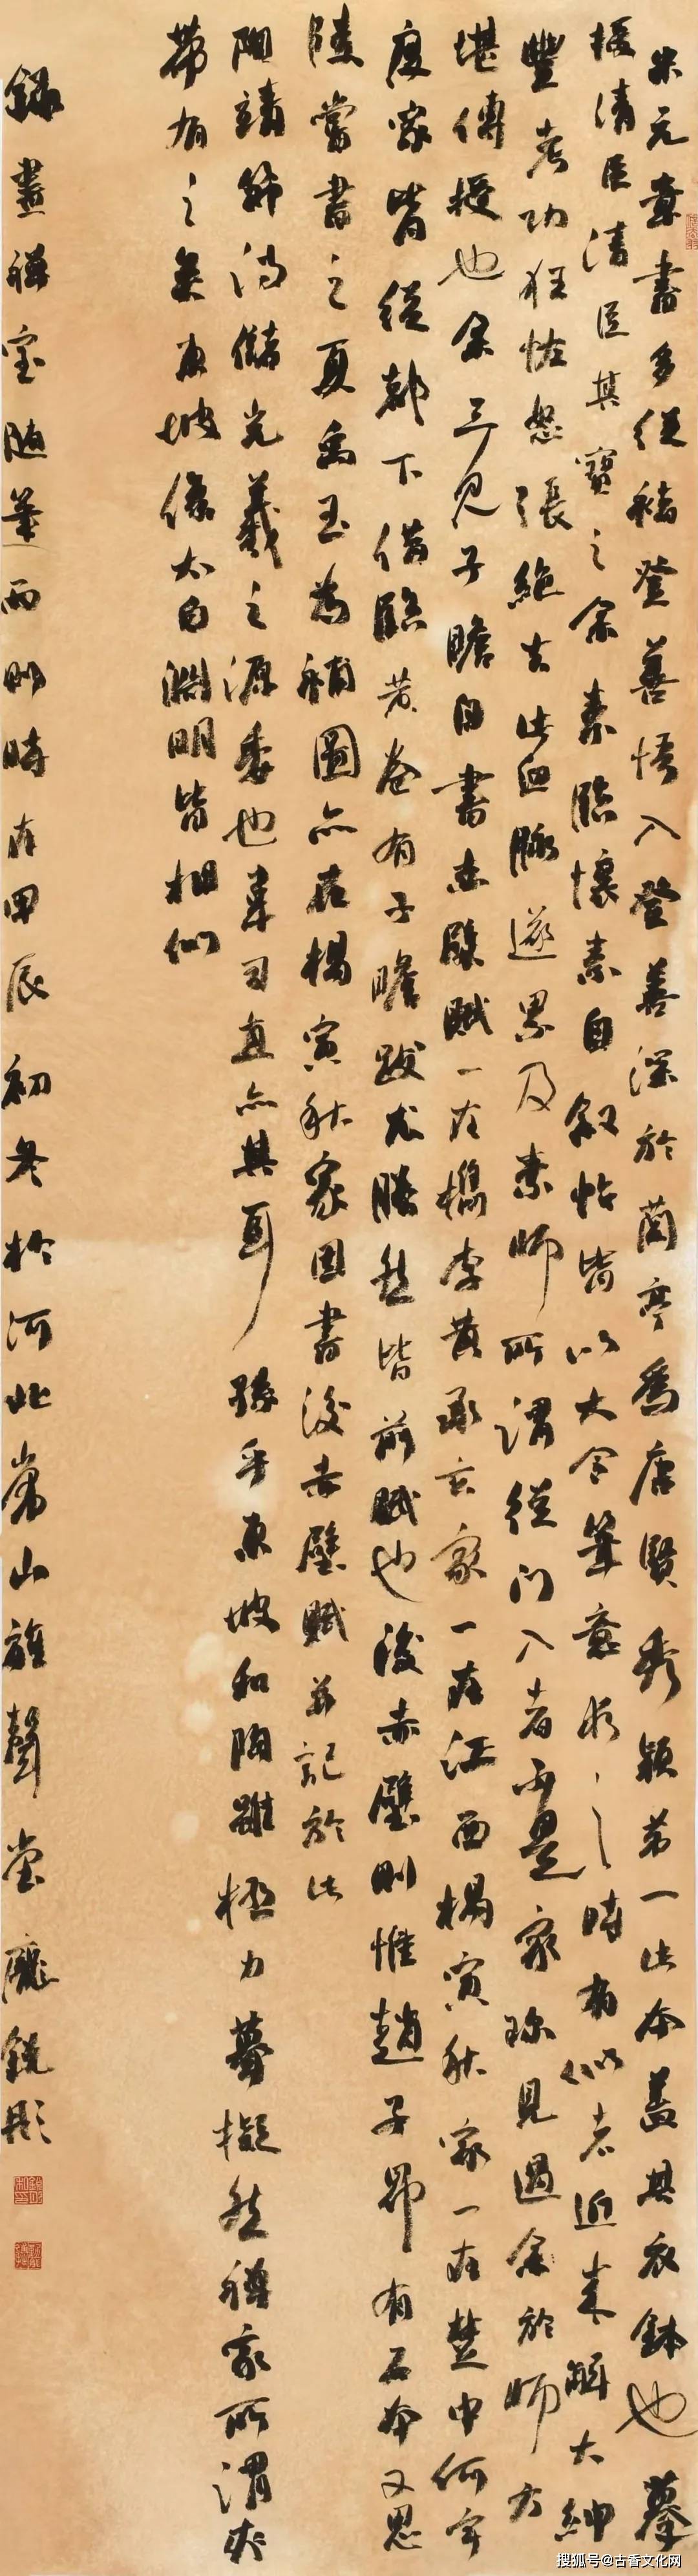 米元章書多從褚登善悟入登善深於蘭亭為唐賢秀穎第一此本蓋其衣鉢也摹
授清臣清臣其寶之余素臨懷素自敘帖皆以大令筆意求之時有似者近來解大紳
豐考功狂怪怒張絕去此血脈遂累及素師所謂從門入者不是家珍見過余於師方
堪傳授也余三見子瞻自書赤壁賦一在檇李黃承玄家一在江西楊寅秋家一在楚中何宇
度家皆從都下借臨黃卷有子瞻跋尤勝然皆前賦也後赤壁則惟趙子昂有石本又思
陵嘗書之夏禹玉為補圖亦在楊寅秋家因書後赤壁賦並記於此
陶靖節得儲光羲之源委也韋司直亦其耳 孫乎東坡和陶雖極力摹擬然禪家所謂夾
帶有之矣東坡像太白淵明皆相似
錄畫禪室隨筆兩則時在甲辰初冬於河北常山雅聲堂龐銳彤
搜狐号@古香文化网